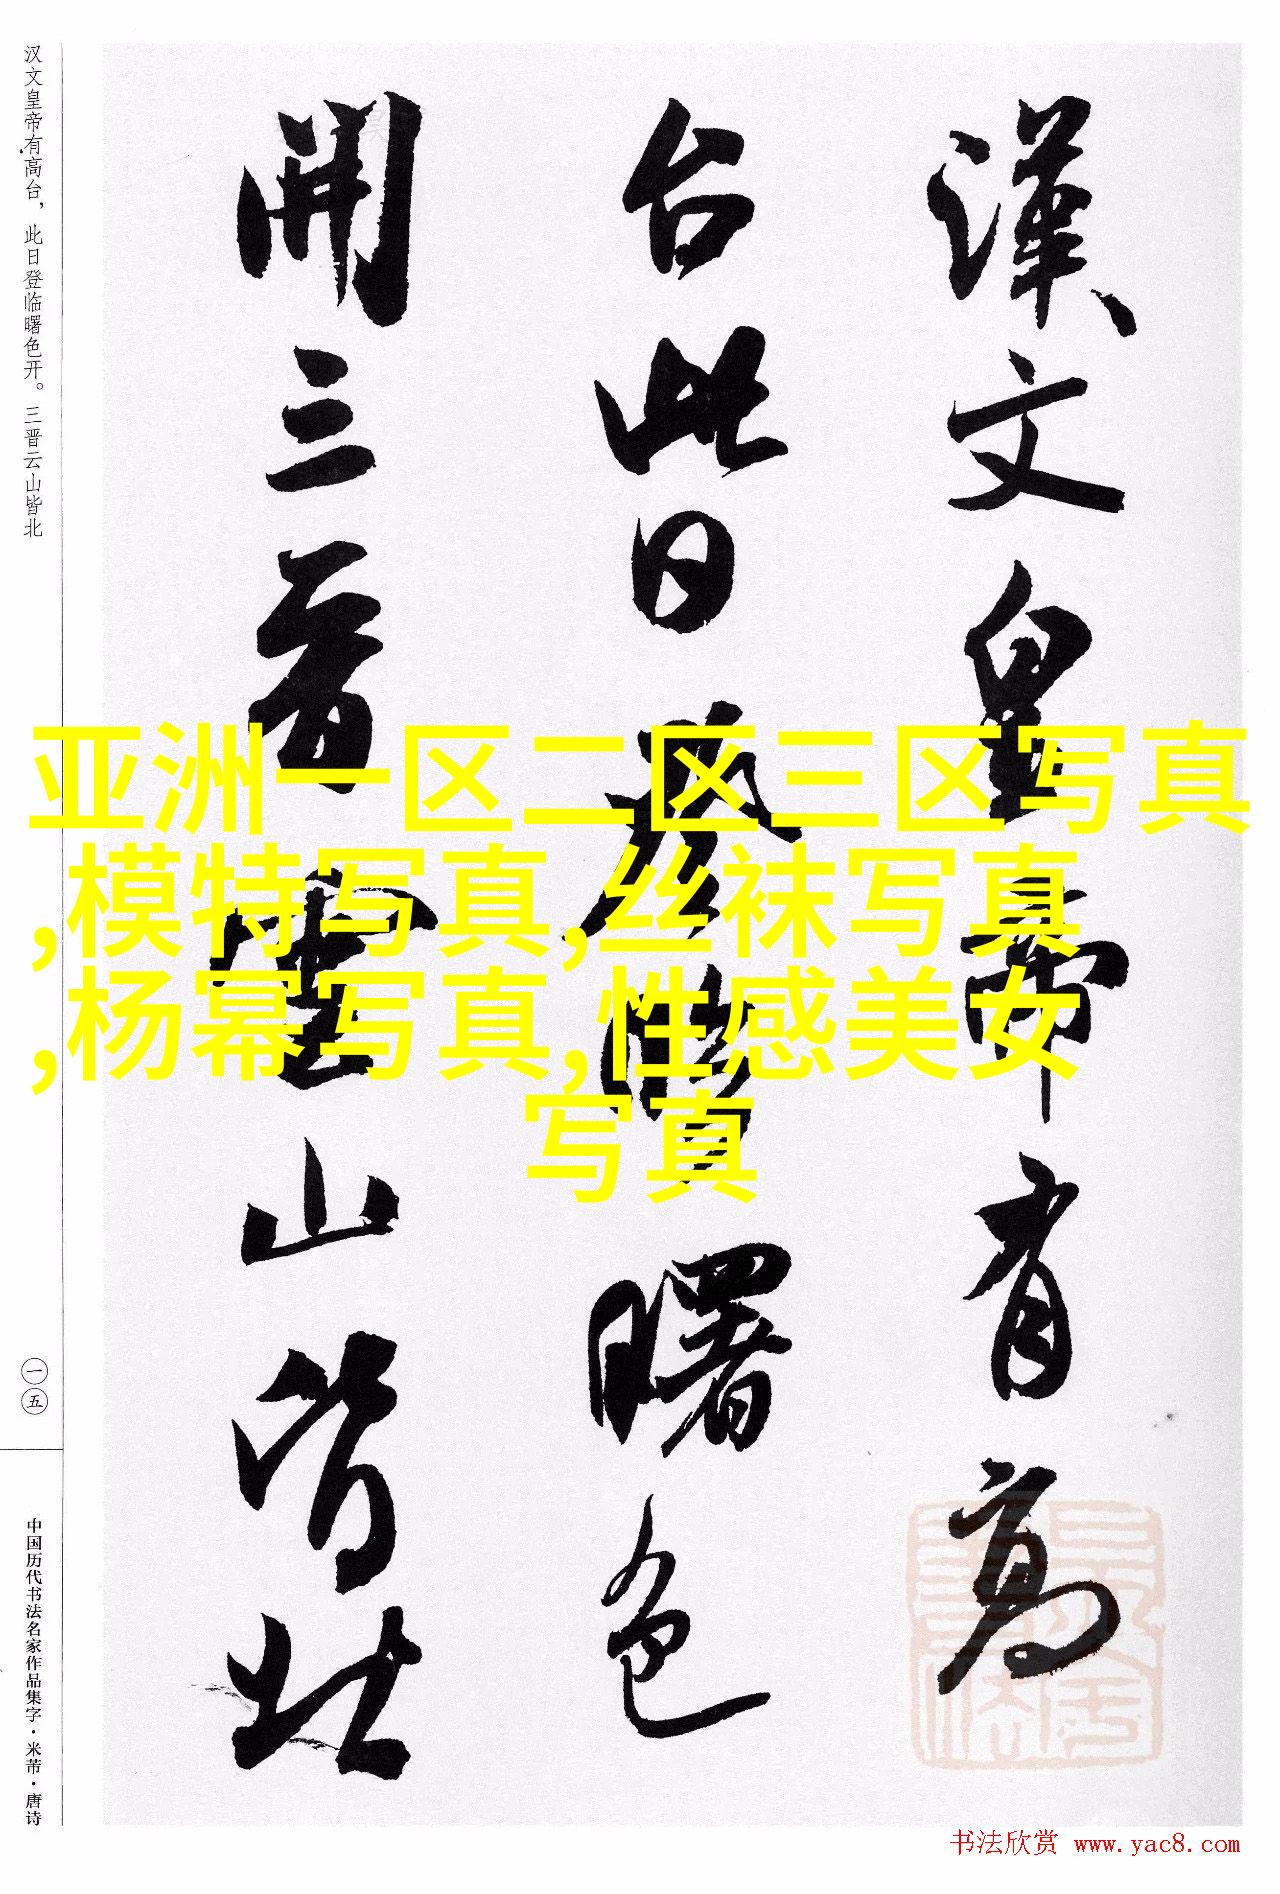 漢文皇帝有高
台此日登臨曙色
開三晉雲山皆北
汉文皇帝有高台，此日登临曙色开。三晋云山皆北
一五
中国历代书法名家作品集字·米芾·唐诗
亚洲一区二区三区写真
,模特写真,丝袜写真
,杨幂写真,性感美女
写真
书法欣赏 www.yac8.com